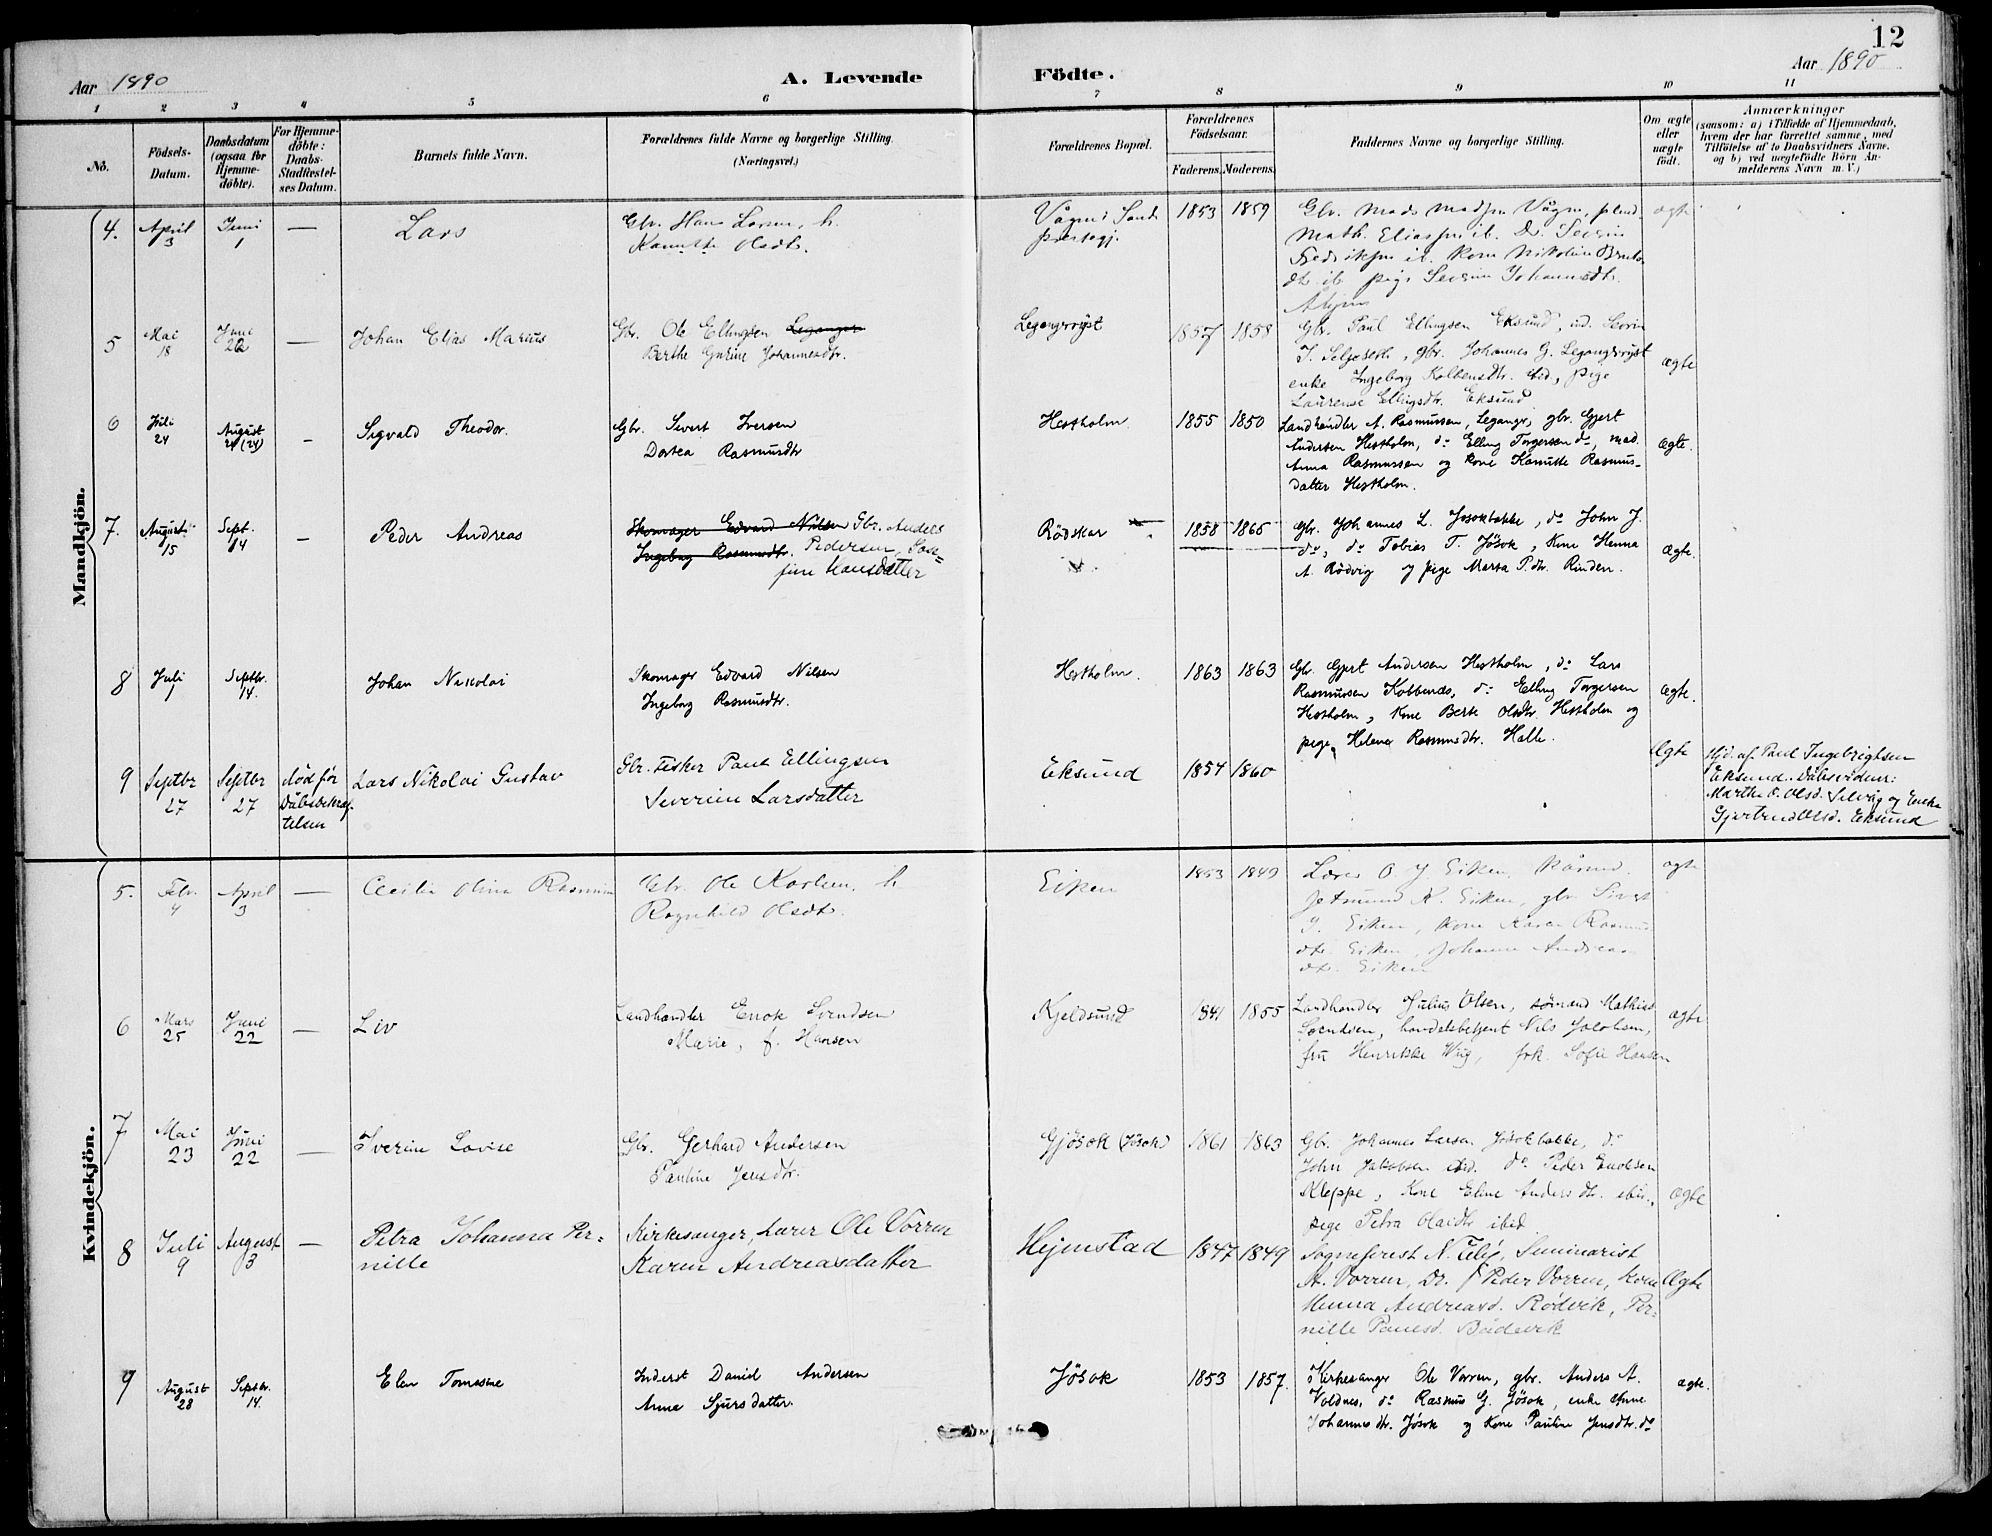 12
Aar 1890
A. Levende
Födte.
Aar 1890
1 2 3 4 5 6 7 8 9 10 11
No.
Födsels-
Datum.
Daabsdatum
(ogsaa for
Hjemme-
döbte).
For Hjemme-
döbte:
Daabs-
Stadfæstel-
ses Datum.
Barnets fulde Navn.
Forældrenes fulde Navne og borgerlige Stilling.
(Næringsvei.)
Forældrenes Bopæl.
Forældrenes
Födselsaar.
Faderens. Moderens.
Faddernes Navne og borgerlige Stilling.
Om ægte
eller
uægte
födt.
Anmærkninger
(saasom: a) i Tilfælde af Hjemmedaab,
hvem der har forrettet samme, med
Tilföielse af to Daabsvidners Navne.
og b) ved uægtefödte Börn An-
melderens Navn m. V.)
Mandkjön.
4. April 3 Juni 1 — Lars
Gbr. Hans Larsen, h.
Olsdtr.
Vågen i Sands
prestegj.
1853 1859
Gbr. Mads Madsen Vågen,
Math. Eliassen ib.
ib. Kone Nikoline
pige Johannesdtr.
ægte
5 Mai 18 Juni 22 — Johan Elias Marius
Gbr. Ole Ellingsen Leganger
Berthe Gurine Johannesdtr.
Legangerøyst
1857 1858
Gbr. Paul Ellingsen Eksund,
gbr. Johannes G. Legangerøyst
enke Ingeborg Kolbensdtr. ibid., pige
Laurense Ellingsdtr. Eksund
ægte
6 Juli 24 August 24 (24) — Sigvald Theodor.
Gbr. Sivert Iversen
Dortea Rasmusdtr
Hestholm
1855 1850
Landhandler A. Rasmussen, Leganger, gbr. Gjert
Andersen Hestholm, do Elling Torgersen do, mad.
Anna Rasmussen og kone Kanutte Rasmus-
datter Hestholm.
ægte.
7. August 15 Sept. 14 — Peder Andreas
Skomager Edvard Nilsen Gbr. Anders
Ingeborg Rasmusdtr. Pedersen, Jose-
fine Hansdatter
Rödskar
1858 1866
Gbr. Johannes L. Jøsokbakke, do John J.
do, do Tobias T. Jøsok, Kone Hanna
A. Rødvig og pige Marta P.dtr. Rinden.
ægte.
8 Juli 1 Septbr. 14. Johan Nikolai
Skomager Edvard Nilsen
Ingeborg Rasmusdtr.
Hestholm.
1863 1863
Gbr. Gjert Andersen Hestholm, do Lars
Rasmussen Kobbenes, do Elling Torgersen
Hestholm, Kone Berte Olsdtr. Hestholm og
pige Helene Rasmusdtr. Halle.
ægte.
9 Septbr 27 Septbr 27
død før
Dåbsbekræf-
telsen
Lars Nikolai Gustav
Gbr. Fisker Paul Ellingsen
Severine Larsdatter
Eksund
1854 1860
Ægte
Hjd. af Paul Ingebrigtsen
Eksund. Dåbsvidner:
Marthe O. Olsd. Selvåg og Enke
Gjertrud Olsd. Eksund
Kvindekjön.
5. Febr. 4 April 3 — Cecilie Olina Rasmine
Gbr. Ole Karlsen, h
Ragnhild Olsdtr.
Eiken
1853 1849
Lærer O. J. Eiken,
Jetmund K. Eiken, gbr. Sivert
J. Eiken, kone Karen Rasmus-
dtr. Eiken, Johanne Andreas-
dtr. Eiken
ægte
6 Mars 25 Juni 22 — Liv
Landhandler Enok Svendsen
Marie, f. Hansen
Kjeldsund
1841 1855
Landhandler Julius Olsen, sømand Mathias
Svendsen, handelsbetjent Nils Jacobsen,
fru Henrikke Wiig, frk. Sofie Hansen
ægte
7 Mai 23 Juni 22 — Iverine Lovise
Gbr. Gerhard Andersen
Pauline Jensdtr.
Gjøsok (Jøsok)
1861 1863
Gbr. Johannes Larsen Jøsokbakke, do
John Jakobsen ibid. do Peder Enoksen
Kleppe, Kone Eline Andersdtr. ibid.,
pige Petra Olaidtr ibid.
ægte
8 Juli 9 August 3 — Petra Johanna Per-
nille
Kirkesanger, Lærer Ole Vorren
Karen Andreasdatter
Hejmstad
1847 1849
Sogneprest N. Seminarist
A. Vorren, Do. Peder Vorren, Kone
Hanna Andreasd. Rødvik, Per-
nille Paulsd. Bådsvik
Ægte
9 August 28 Septbr. 14. Elen Tomasine
Inderst Daniel Andersen
Anna Sjursdatter.
Jøsok
1853 1857.
Kirkesanger Ole Vorren, gbr. Anders A.
Voldnes, do Rasmus G. Jøsok, enke Anne
Johannesdtr. Jøsok og Kone Pauline Jensdtr. do
ægte.